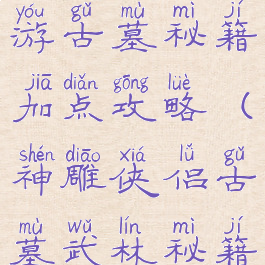 yóu gǔ mù mì jí
游古墓秘籍
jiā diǎn gōng lüè
加点攻略（
shén diāo xiá lǚ gǔ
神雕侠侣古
mù wǔ lín mì jí
墓武林秘籍